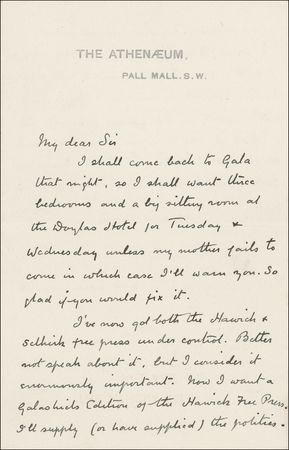 THE ATHENÆUM,
PALL MALL. S.W.
My dear Sir
I shall come back to Gala
that night, so I shall want three
bedrooms and a big sitting room at
the Douglas Hotel for Tuesday &
Wednesday unless my mother fails to
come in which case I'll warn you. So
glad if you would fix it.
I've now got both the Hawick &
Selkirk free press under control. Better
not speak about it, but I consider it
enormously important. Now I want a
Galashiels Edition of the Hawick Free Press.
I'll supply (or have supplied) the politics.